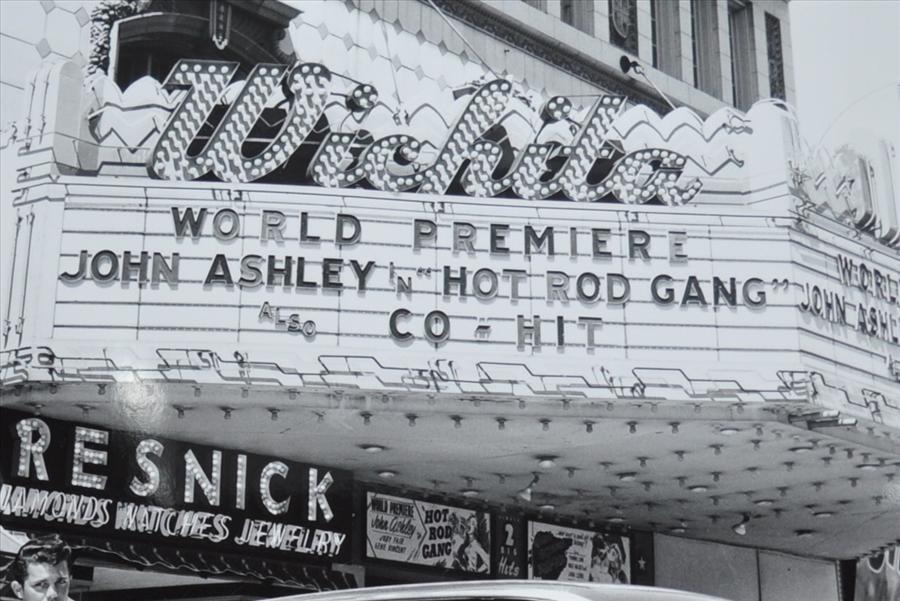 Wichita
WORLD PREMIERE
JOHN ASHLEY IN "HOT ROD GANG"
ALSO CO-HIT
WORL
JOHN ASHLE
RESNICK
DIAMONDS WATCHES JEWELRY
WORLD PREMIERE
John Ashley
JODY FAIR
GENE VINCENT
HOT
ROD
GANG
2
Hits